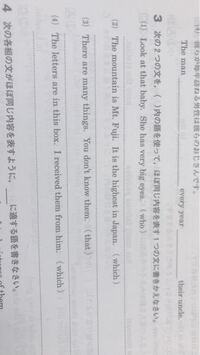 (4) 彼らが毎年訪ねる男性は彼らのおじさんです。
The man every year their uncle.
3 次の2つの文を，( )内の語を使って，ほぼ同じ内容を表す1つの文に書きかえなさい。
(1) Look at that baby. She has very big eyes. (who)
(2) The mountain is Mt. Fuji. It is the highest in Japan. (which)
(3) There are many things. You don't know them. (that)
(4) The letters are in this box. I received them from him. (which)
4 次の各組の文がほぼ同じ内容を表すように，＿＿に適する語を書きなさい。